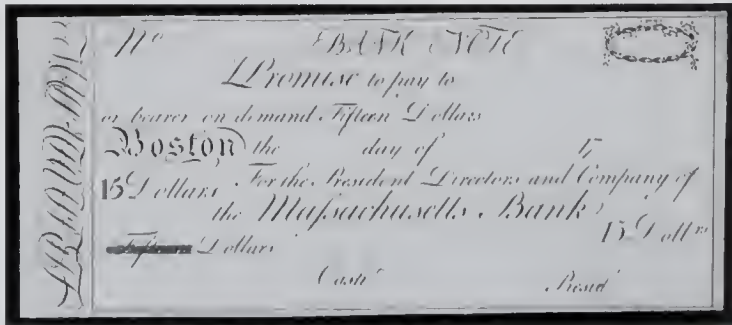 No BANK NOTE
I Promise to pay to
or bearer on demand Fifteen Dollars
Boston the day of 17
15 Dollars For the President Directors and Company of
the Maſsachusetts Bank
15 Dollrs
Fifteen Dollars
Cashr Presidt